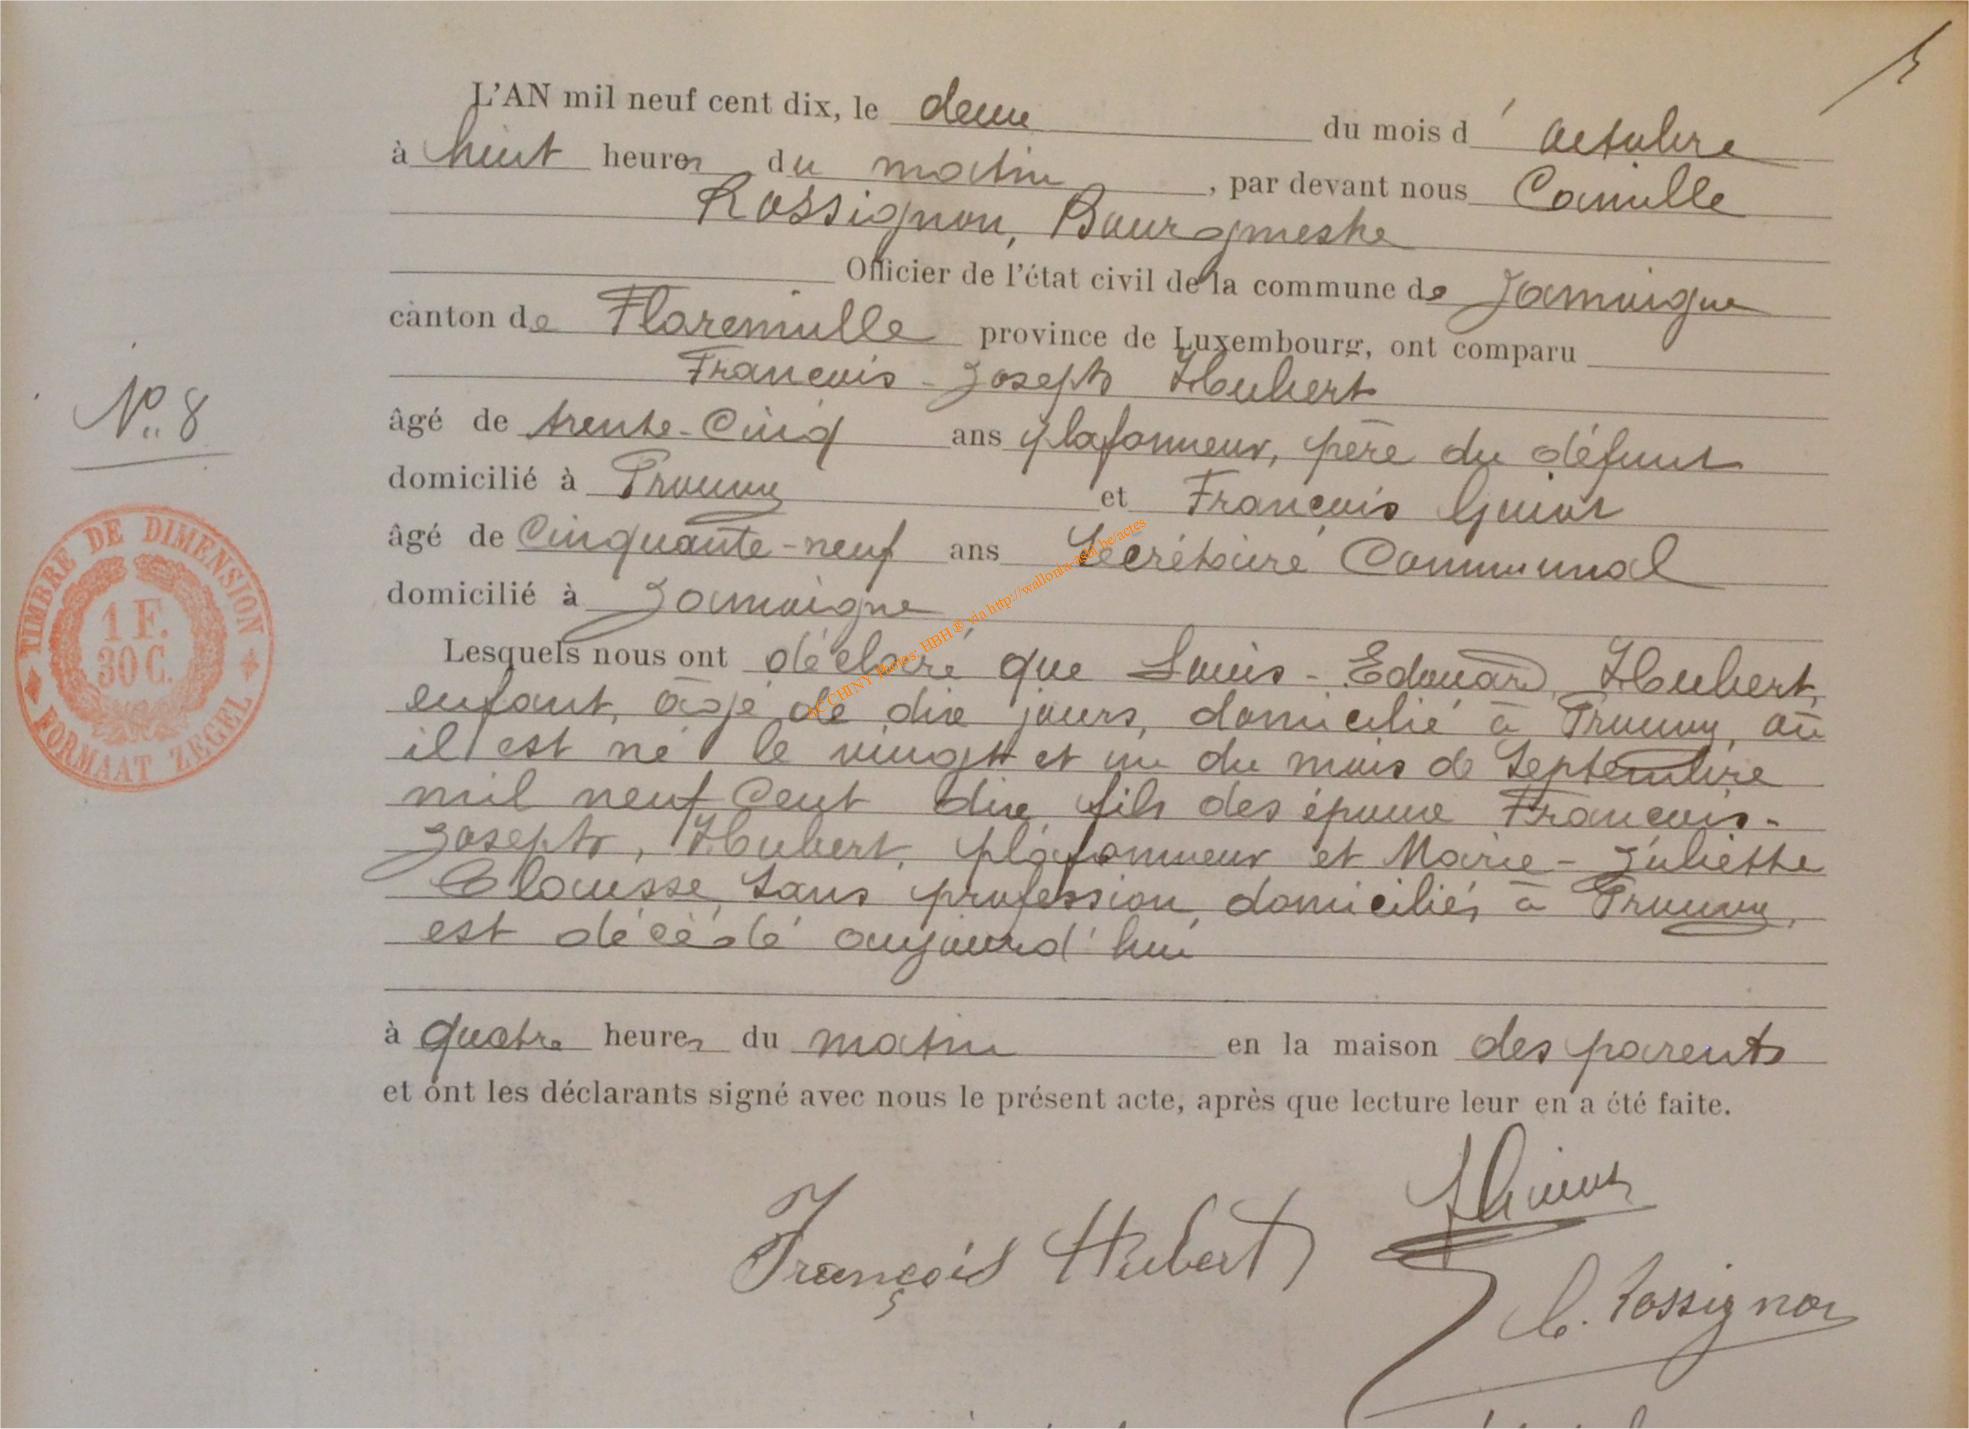 L'AN mil neuf cent dix, le deux du mois d'octobre
à huit heures du matin, par devant nous Camille
Rossignon, Bourgmestre
Officier de l'état civil de la commune de Jamoigne
canton de Florenville province de Luxembourg, ont comparu
François-Joseph Hubert
âgé de trente-cinq ans plafonneur, père du défunt
domicilié à Prouvy et François Guiot
âgé de cinquante-neuf ans Secrétaire Communal
domicilié à Jamoigne
Lesquels nous ont déclaré que Louis-Edouard Hubert,
enfant, âgé de dix jours, domicilié à Prouvy, où
il est né le vingt et un du mois de Septembre
mil neuf cent dix fils des époux François-
Joseph, Hubert, plafonneur et Marie-Juliette
Clausse, sans profession, domiciliés à Prouvy,
est décédé aujourd'hui
à quatre heures du matin en la maison des parents
et ont les déclarants signé avec nous le présent acte, après que lecture leur en a été faite.
No. 8
TIMBRE DE DIMENSION
1 F.
30 C.
FORMAAT ZEGEL
HBH ® via http://wallonia-asbl.be/actes
François Hubert
C. Rossignon